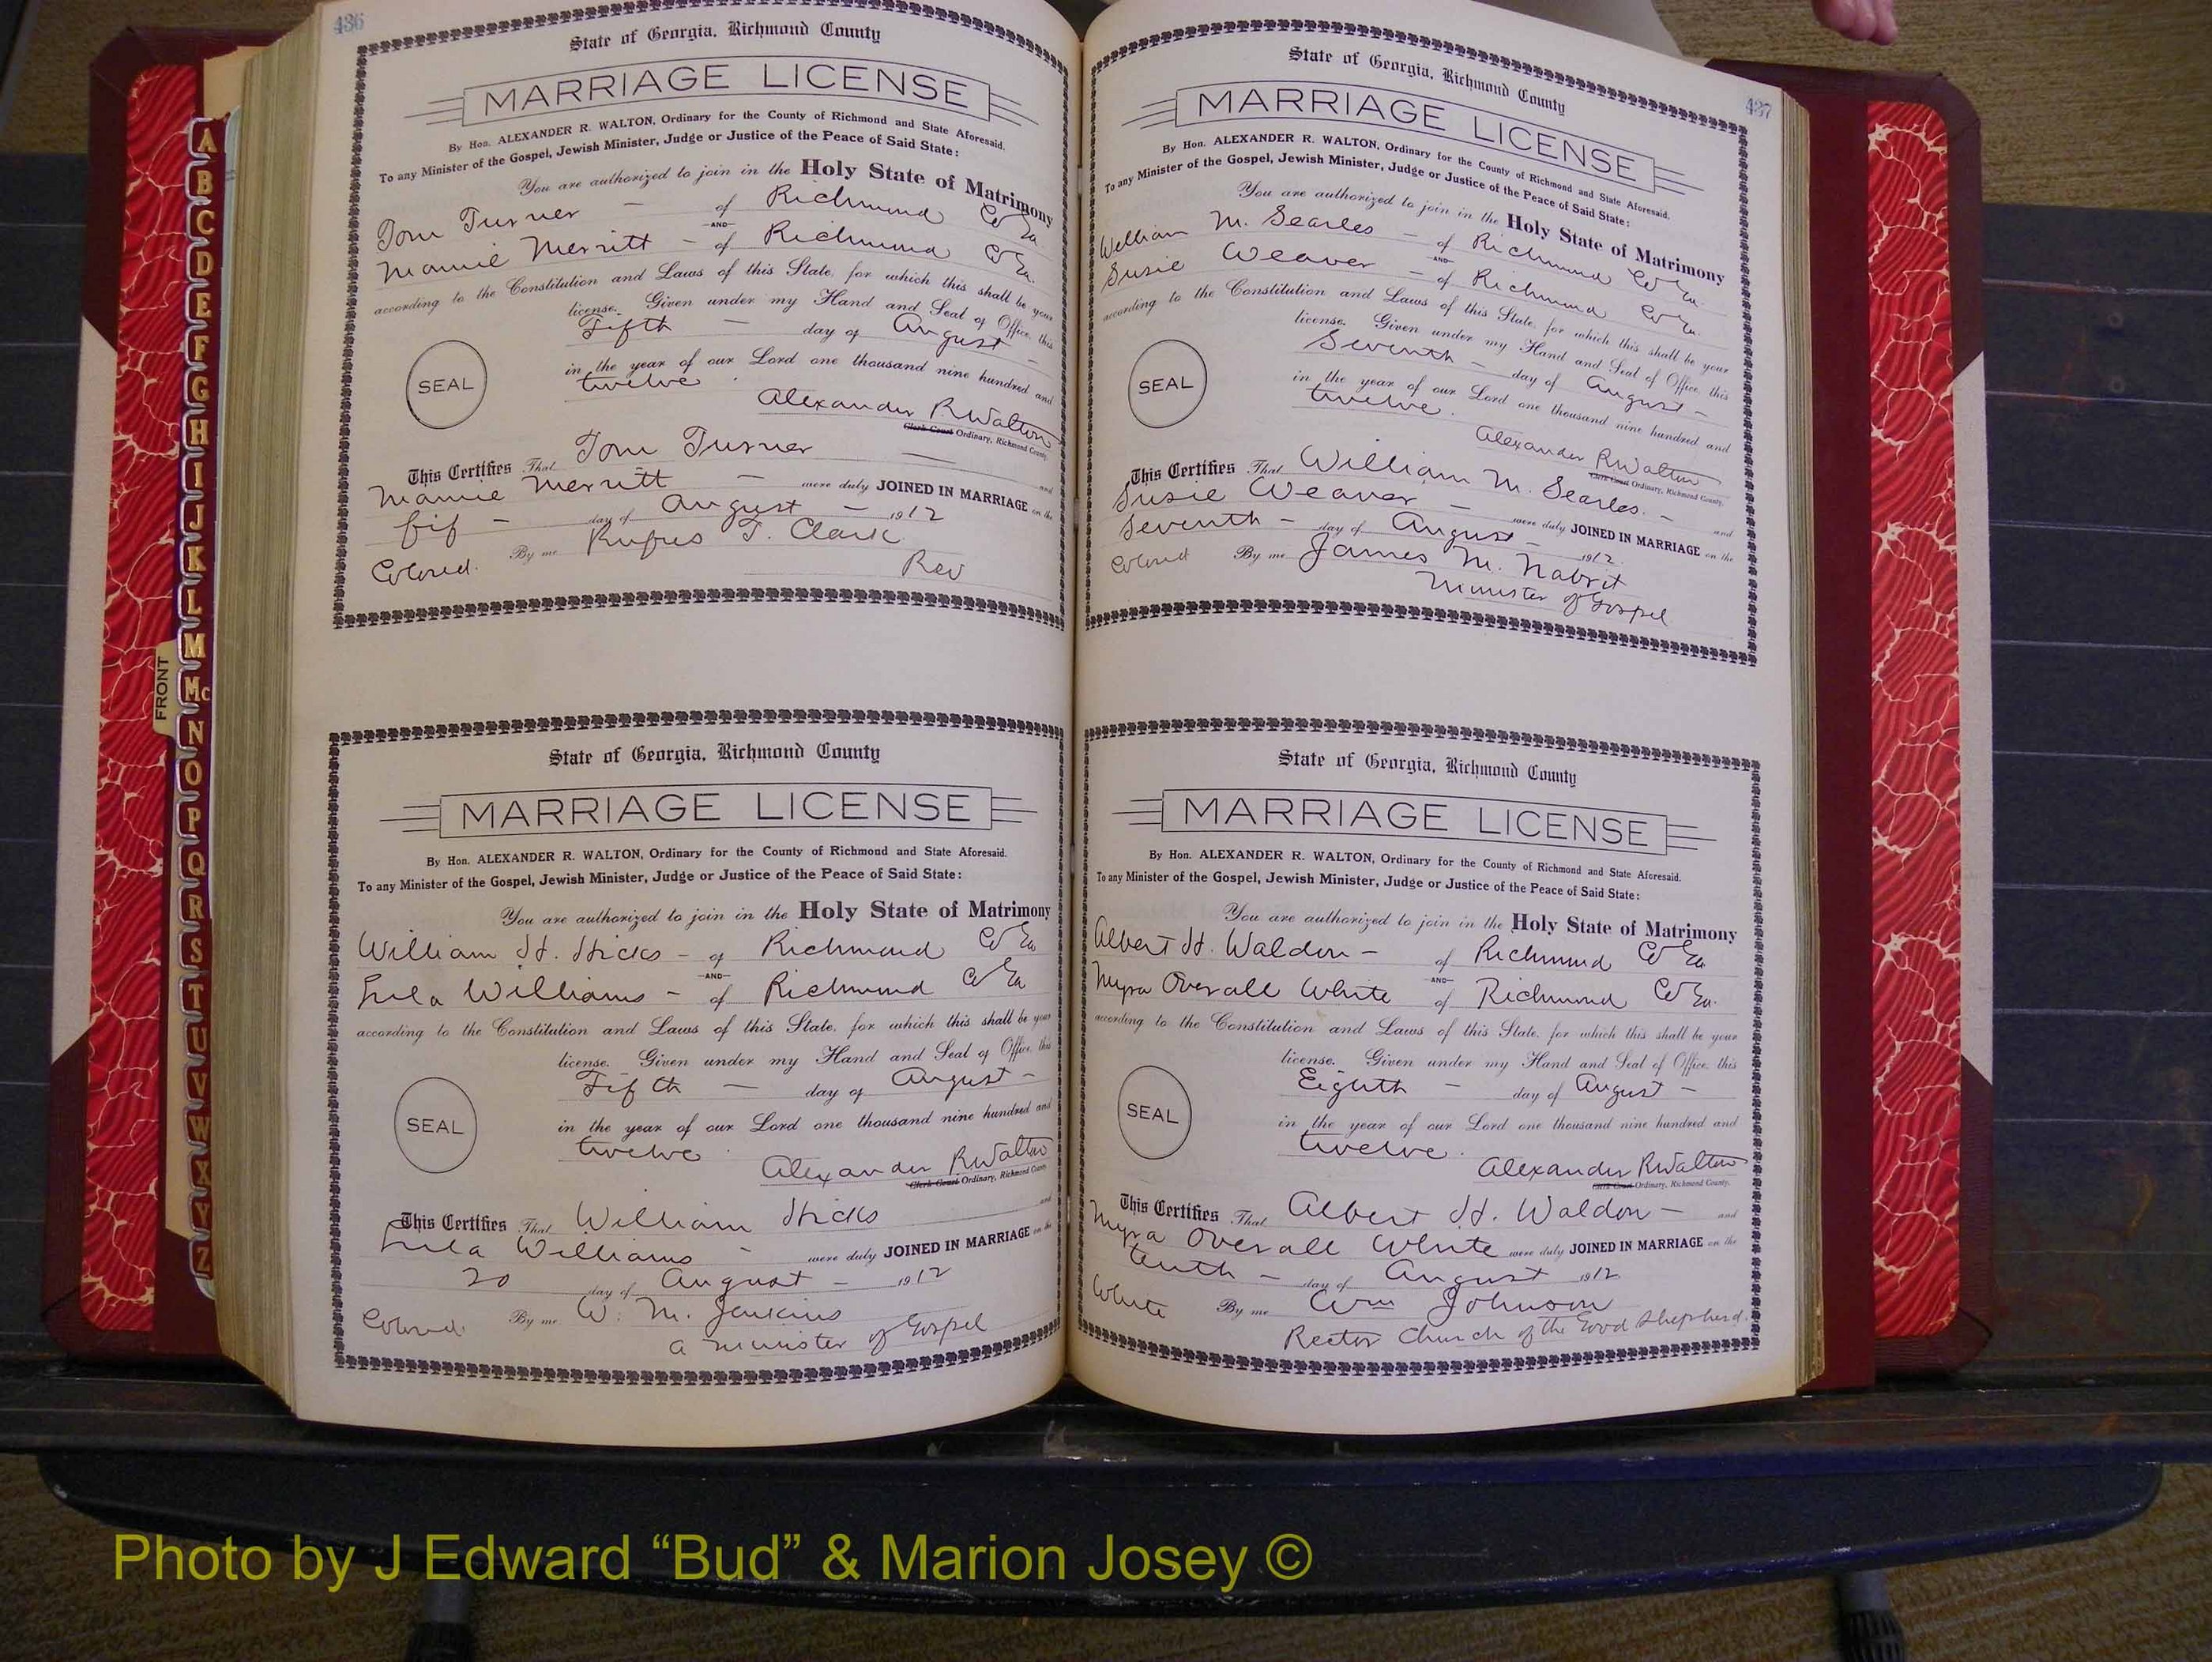 436
State of Georgia, Richmond County
MARRIAGE LICENSE
By Hon. ALEXANDER R. WALTON, Ordinary for the County of Richmond and State Aforesaid.
To any Minister of the Gospel, Jewish Minister, Judge or Justice of the Peace of Said State:
You are authorized to join in the Holy State of Matrimony
Tom Turner - of Richmond Co Ga
AND
Mamie Merritt - of Richmond Co Ga.
according to the Constitution and Laws of this State, for which this shall be your
license. Given under my Hand and Seal of Office, this
Fifth - day of August -
in the year of our Lord one thousand nine hundred and
twelve.
SEAL
Alexander R Walton
Clerk Court Ordinary, Richmond County.
This Certifies That Tom Turner - and
Mamie Merritt - were duly JOINED IN MARRIAGE on the
fif - day of August - 1912
Colored. By me Rufus T. Clark
Rev
State of Georgia, Richmond County
MARRIAGE LICENSE
By Hon. ALEXANDER R. WALTON, Ordinary for the County of Richmond and State Aforesaid.
To any Minister of the Gospel, Jewish Minister, Judge or Justice of the Peace of Said State:
You are authorized to join in the Holy State of Matrimony
William H. Hicks - of Richmond Co Ga
AND
Lula Williams - of Richmond Co Ga
according to the Constitution and Laws of this State, for which this shall be your
license. Given under my Hand and Seal of Office, this
Fifth - day of August -
in the year of our Lord one thousand nine hundred and
twelve.
SEAL
Alexander R Walton
Clerk Court Ordinary, Richmond County.
This Certifies That William Hicks and
Lula Williams - were duly JOINED IN MARRIAGE on the
20 day of August - 1912
Colored. By me W. M. Jenkins
a minister of Gospel
437
State of Georgia, Richmond County
MARRIAGE LICENSE
By Hon. ALEXANDER R. WALTON, Ordinary for the County of Richmond and State Aforesaid.
To any Minister of the Gospel, Jewish Minister, Judge or Justice of the Peace of Said State:
You are authorized to join in the Holy State of Matrimony
William M. Searles - of Richmond Co Ga.
AND
Susie Weaver - of Richmond Co Ga.
according to the Constitution and Laws of this State, for which this shall be your
license. Given under my Hand and Seal of Office, this
Seventh - day of August -
in the year of our Lord one thousand nine hundred and
twelve.
SEAL
Alexander R Walton
Clerk Court Ordinary, Richmond County.
This Certifies That William M. Searles. - and
Susie Weaver - were duly JOINED IN MARRIAGE on the
Seventh - day of August - 1912.
Colored By me James M. Nabrit
Minister of Gospel
State of Georgia, Richmond County
MARRIAGE LICENSE
By Hon. ALEXANDER R. WALTON, Ordinary for the County of Richmond and State Aforesaid.
To any Minister of the Gospel, Jewish Minister, Judge or Justice of the Peace of Said State:
You are authorized to join in the Holy State of Matrimony
Albert H. Waldon - of Richmond Co Ga
AND
Myra Overall White of Richmond Co Ga.
according to the Constitution and Laws of this State, for which this shall be your
license. Given under my Hand and Seal of Office, this
Eighth - day of August -
in the year of our Lord one thousand nine hundred and
twelve.
SEAL
Alexander R Walton
Clerk Court Ordinary, Richmond County.
This Certifies That Albert H. Waldon - and
Myra Overall White were duly JOINED IN MARRIAGE on the
tenth - day of August 1912
White By me Wm Johnson
Rector Church of the Good Shepherd.
A
B
C
D
E
F
G
H
I
J
K
L
M
Mc
N
O
P
Q
R
S
T
U
V
W
X
Y
Z
FRONT
Photo by J Edward “Bud” & Marion Josey ©